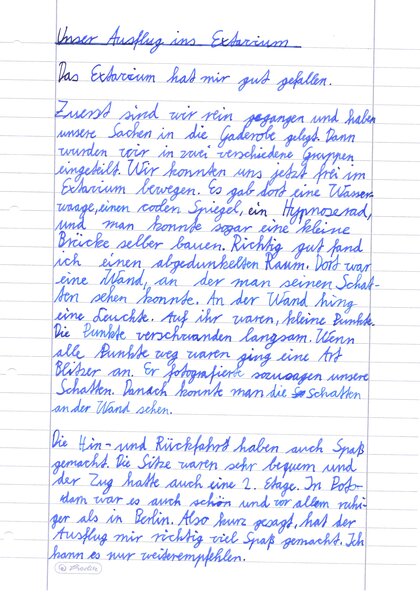 Unser Ausflug ins Extavium
Das Extavium hat mir gut gefallen.
Zuerst sind wir rein gegangen und haben
unsere Sachen in die Gaderobe gelegt. Dann
wurden wir in zwei verschiedene Gruppen
eingeteilt. Wir konnten uns jetzt frei im
Extavium bewegen. Es gab dort eine Wasser-
waage, einen coolen Spiegel, ein Hypnoserad,
und man konnte sogar eine kleine
Brücke selber bauen. Richtig gut fand
ich einen abgedunkelten Raum. Dort war
eine Wand, an der man seinen Schat-
ten sehen konnte. An der Wand hing
eine Leuchte. Auf ihr waren, kleine Punkte.
Die Punkte verschwanden langsam. Wenn
alle Punkte weg waren ging eine Art
Blitzer an. Er fotografierte sozusagen unsere
Schatten. Danach konnte man die Schatten
an der Wand sehen.
Die Hin- und Rückfahrt haben auch Spaß
gemacht. Die Sitze waren sehr bequem und
der Zug hatte auch eine 2. Etage. In Pots-
dam war es auch schön und vor allem ruhi-
ger als in Berlin. Also kurz gesagt, hat der
Ausflug mir richtig viel Spaß gemacht. Ich
kann es nur weiterempfehlen.